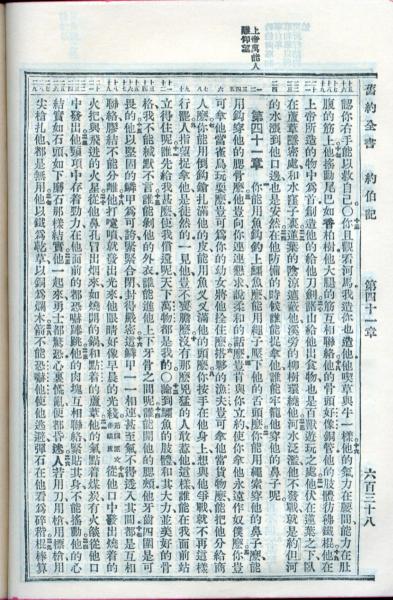 上帝萬能人
難仰望
舊約全書 約伯記 第四十一章 六百三十八
認你右手能以救自己〇你且觀看河馬我造你也造他他喫草與牛一樣他的氣力在腰間能力在肚
腹的筋上他搖動尾巴如香柏樹他大腿的筋互相聯絡他的骨頭好像銅管他的肢體彷彿鐵棍他在
上帝所造的物中為首創造他的給他刀劍諸山給他出食物也是百獸遊玩之處他伏在蓮葉之下臥
在蘆葦隱密處和水窪子裏蓮葉的陰涼遮蔽他溪旁的柳樹環繞他河水泛濫他不發戰就是約但河
的水漲到他口邊也是安然在他防備的時候誰能捉拿他誰能牢籠他穿他的鼻子呢
第四十一章 你能用魚鉤釣上鱷魚麼能用繩子壓下他的舌頭麼你能用繩索穿他的鼻子麼能
用鉤穿他的腮骨麼他豈向你連連懇求說柔和的話麼豈肯與你立約使你拿他永遠作奴僕麼你豈
可拿他當雀鳥玩耍麼豈可為你的幼女將他拴住麼搭夥的漁夫豈可拿他當貨物麼能把他分給商
人麼你能用倒鉤鎗扎滿他的皮能用魚叉叉滿他的頭麼你按手在他身上想與他爭戰就不再這樣
行罷人指望捉拿他是徒然的一見他豈不喪膽麼沒有那麼兇猛的人敢惹他這樣誰能在我面前站
立得住呢誰先給我甚麼使我償還呢天下萬物都是我的〇論到鱷魚的肢體和其大力並美好的骨
格我不能緘默不言誰能剝他的外衣誰能進他上下牙骨之間呢誰能開他的腮頰他牙齒四圍是可
畏的他以堅固的鱗甲為可誇緊緊合閉封得嚴密這鱗甲一一相連甚至氣不得透入其間都是互相
聯絡膠結不能分離他打噴嚏就發出光來他眼睛好像早晨的光線從他口中發出燒着的
火把與飛迸的火星從他鼻孔冒出烟來如燒開的鍋和點着的蘆葦他的氣點着煤炭有火燄從他口
中發出他頸項中存着勁力在他面前的都恐嚇蹦跳他的肉塊互相聯絡緊貼其身不能搖動他的心
結實如石頭如下磨石那樣結實他一起來勇士都驚恐心裏慌亂便都昏迷人若用刀用槍用標槍用
尖槍扎他都是無用他以鐵為乾草以銅為爛木箭不能恐嚇他使他逃避彈石在他看為碎稭棍棒算